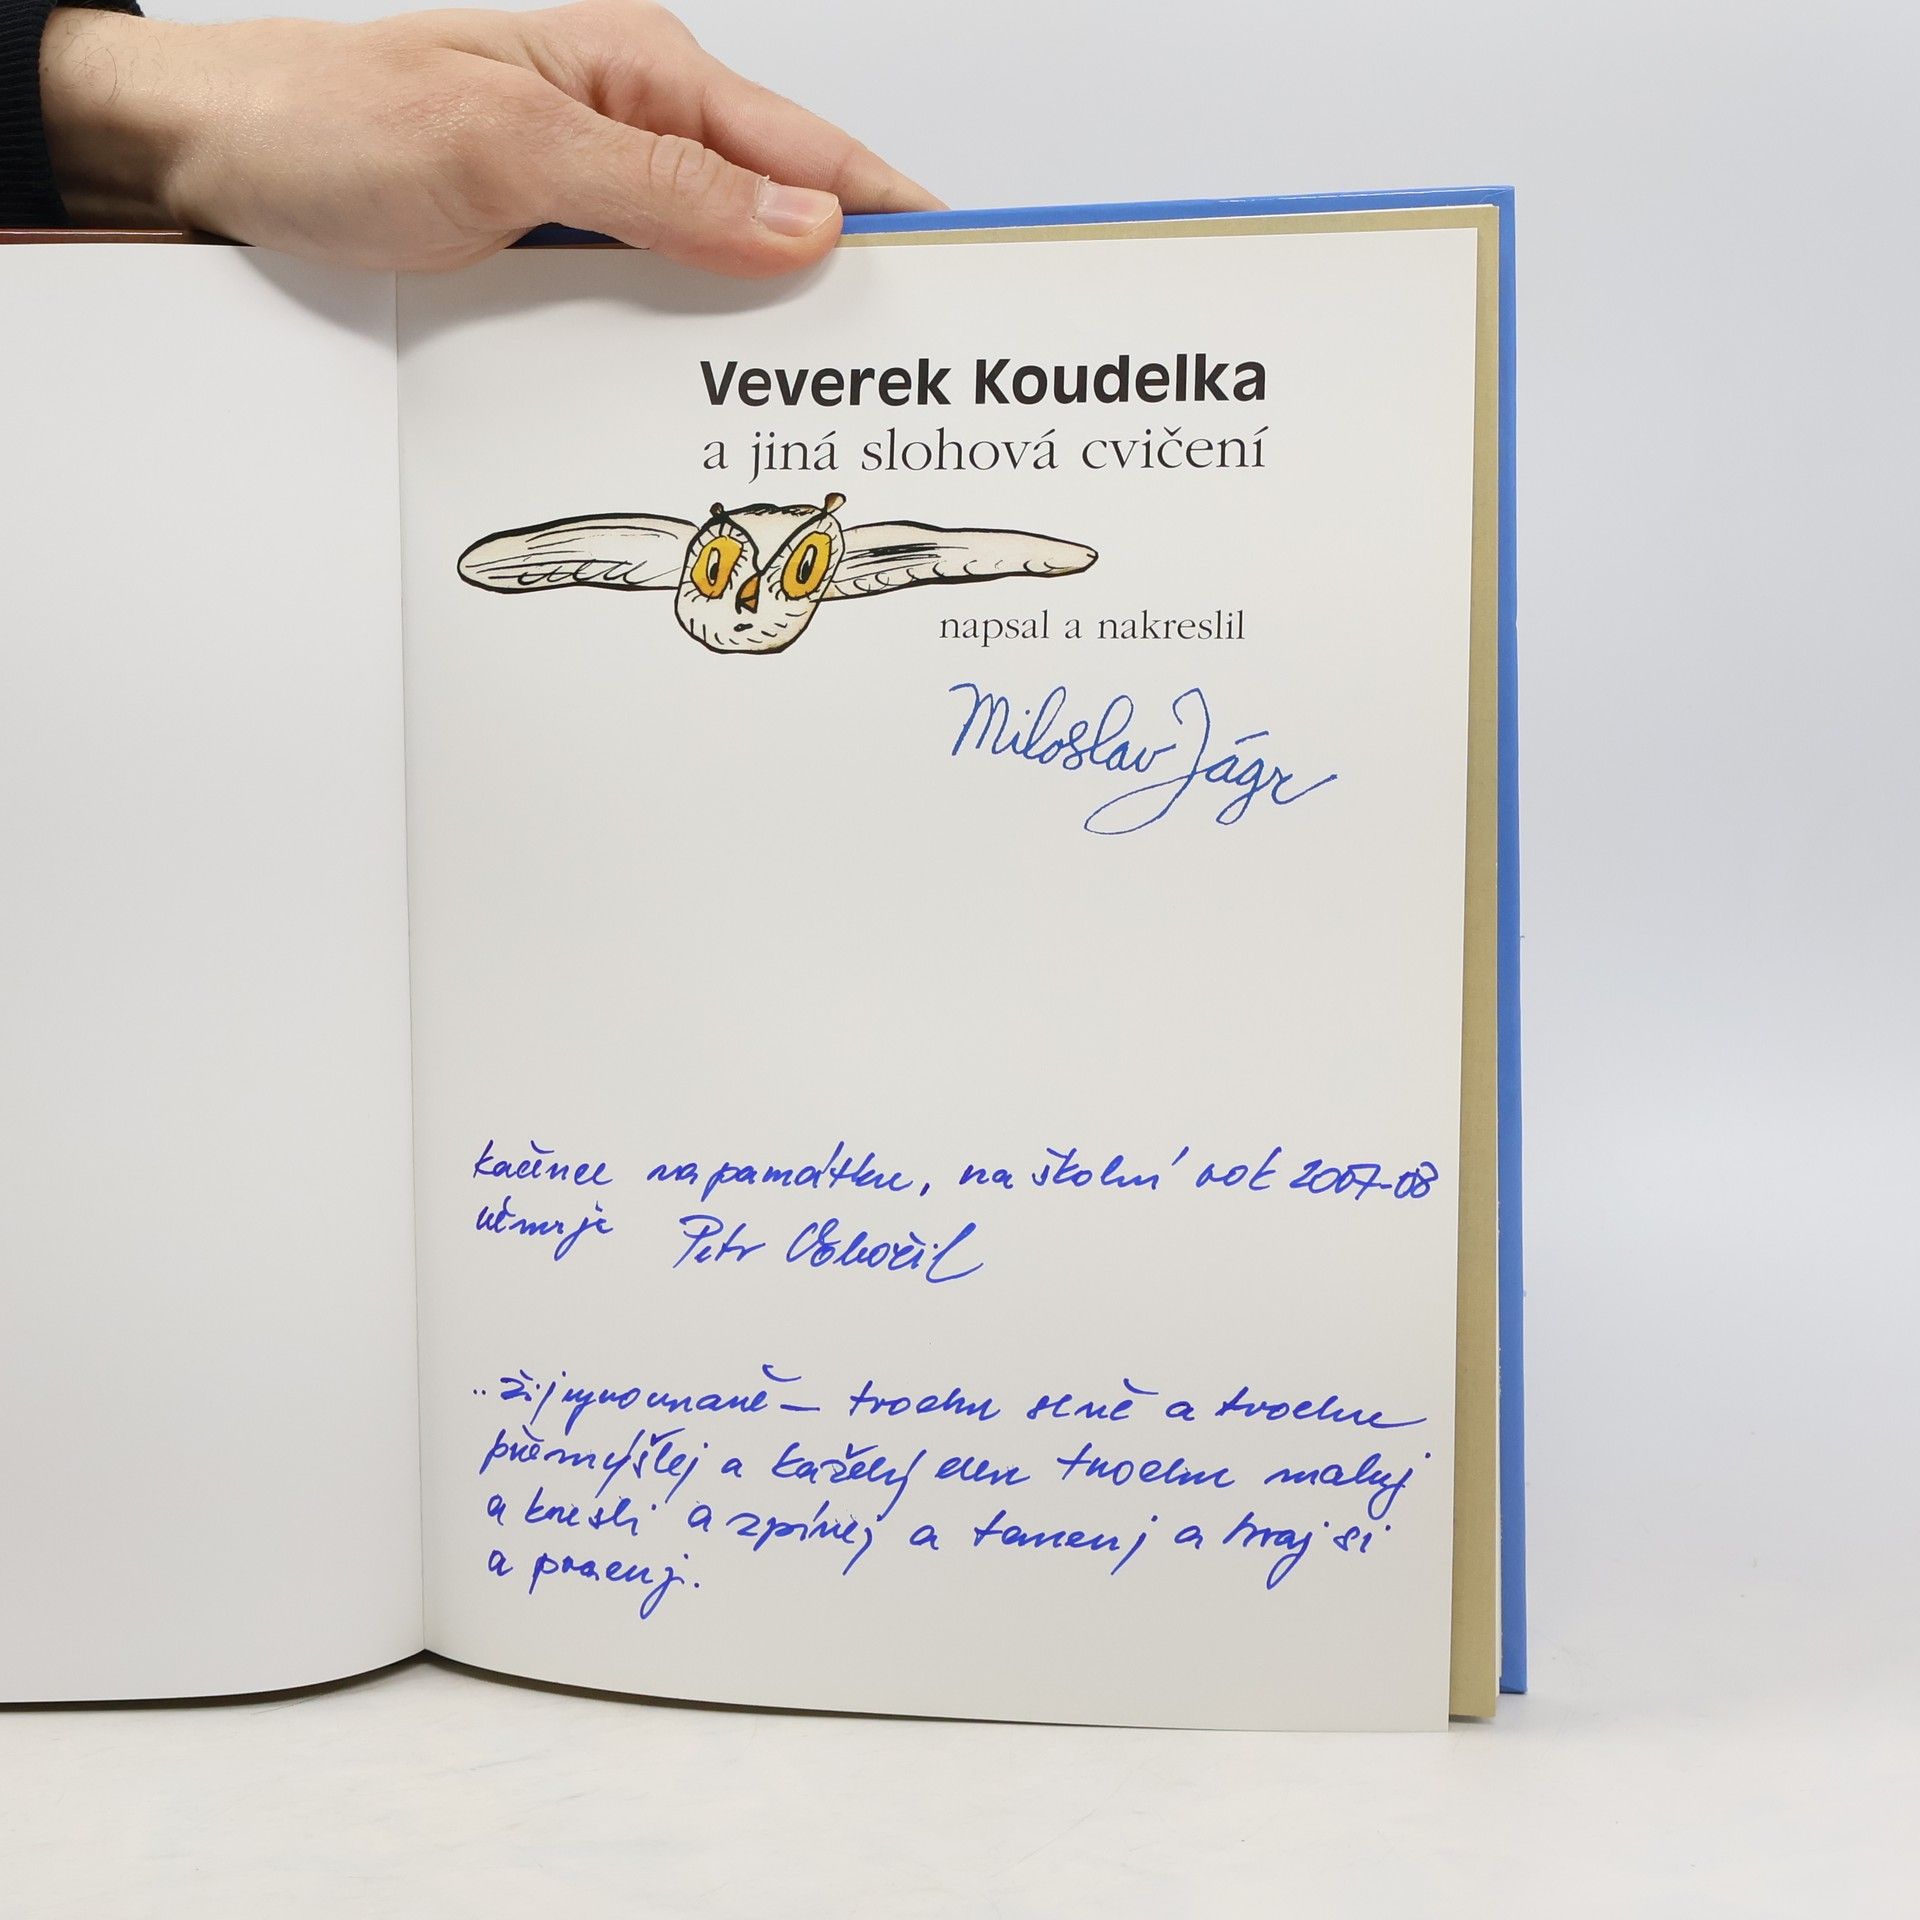 Veverek Koudelka
a jiná slohová cvičení
napsal a nakreslil
Miloslav Jágr
Kačence na památku, na školní rok 2007-08
věnuje Petr
„Žij vyrovnaně – trochu se uč a trochu
přemýšlej a každý den trochu maluj
a kresli a zpívej a tancuj a hraj si
a pracuj.